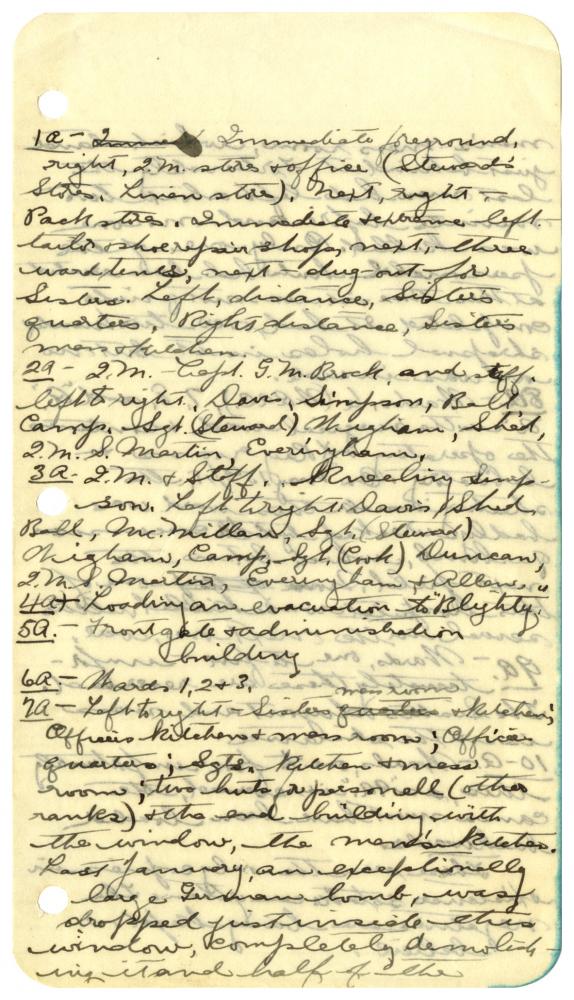 1a- Immediate foreground,
right, Q.M. stores & office (Steward's
Stores, Linen store). Next, right -
Pack stores. Immediate & extreme left
tailor & shoe repair shop, next, three
ward tents, next - dug-out for
Sisters. Left, distance, Sisters
quarters, Right distance, Sisters
mess & kitchen.
2a - Q.M. - Capt. G. M. Brock, and staff.
left to right, Davis, Simpson, Ball
Camp, Sgt. (Steward) Whigham, Shed,
Q.M.S. Martin, Everingham,
3a- Q.M. & Staff. Kneeling Simp-
son. Left to right: Davis, Shed,
Ball, McMillan, Sgt. (Steward)
Whigham, Camp, Sgt. (Cook), Duncan,
Q.M.S. Martin, Everingham & Allen.
4a Loading an evacuation to "Blighty."
5a. - Front gate & administration
building
6a - Wards 1, 2 & 3.
7a - Left to right - Sisters quarters mess room & kitchen;
Officers kitchen & mess room; Officers
quarters; Sgts. kitchen & mess
room; two huts for personell (other
ranks) & the end building with
the window, the men's kitchen.
Last January, an exceptionally
large German bomb, was
dropped just inside this
window, completely demolish-
ing it and half of the